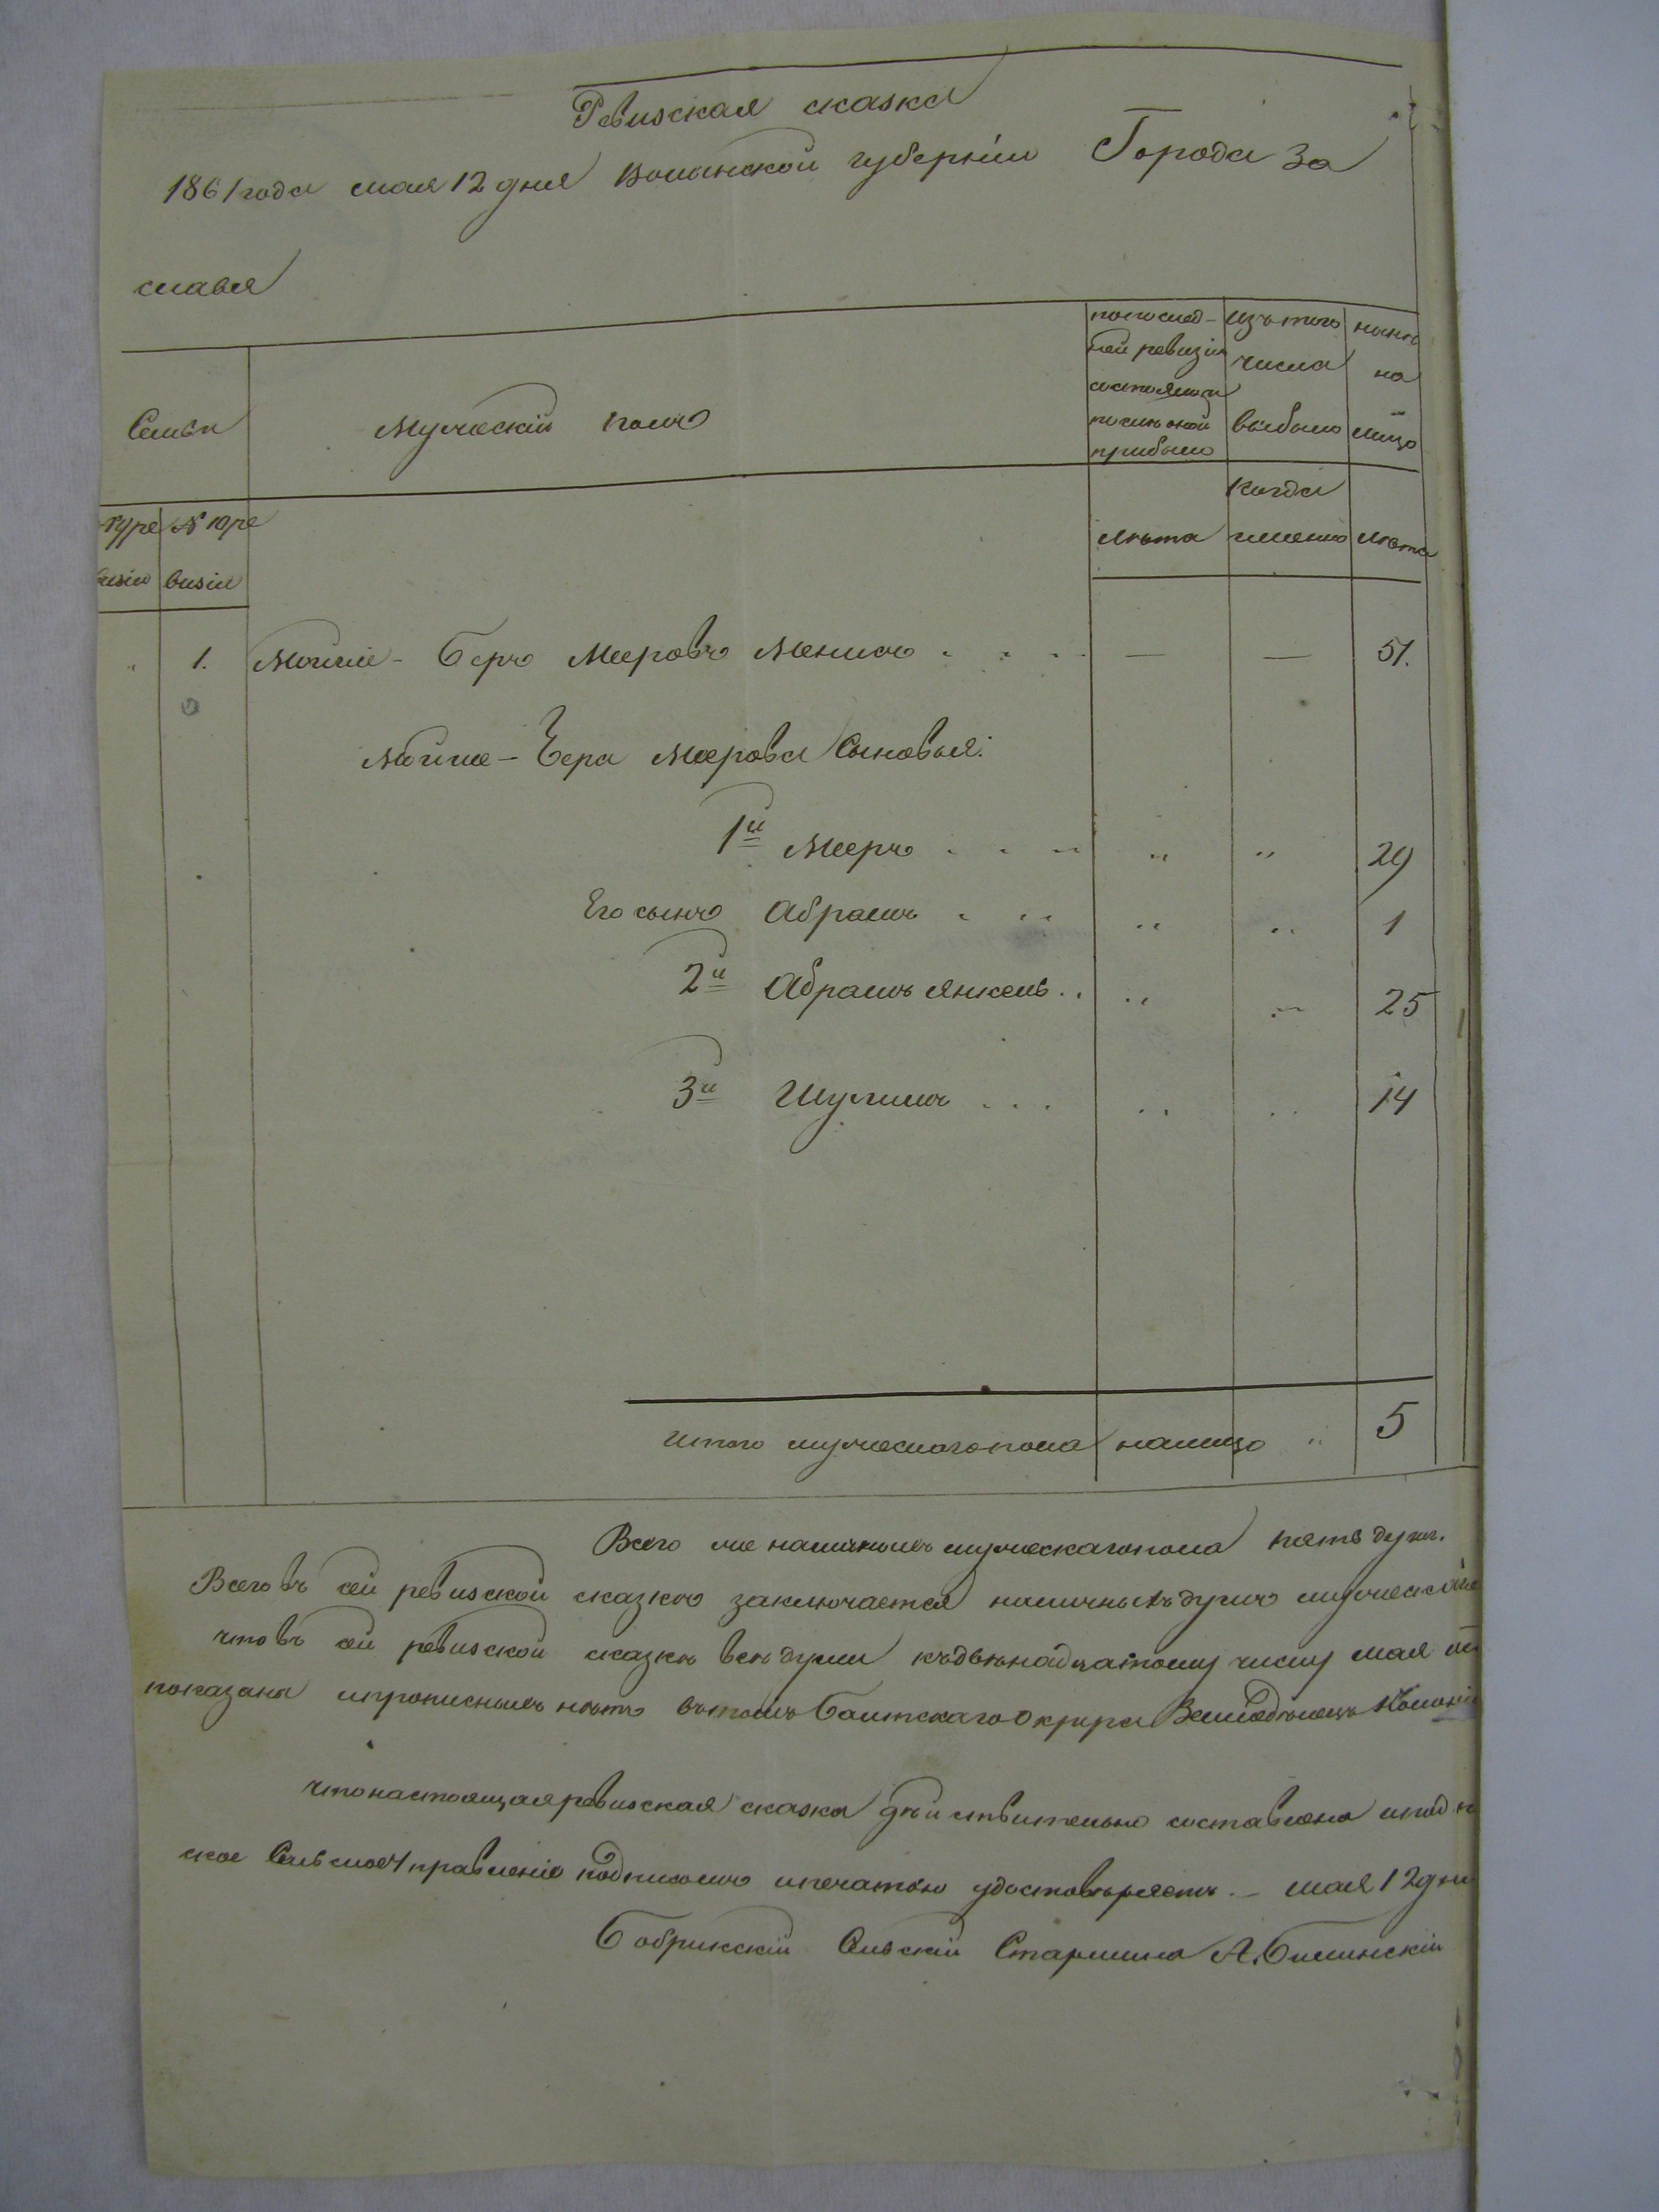 Ревизская сказка
1861 года мая 12 дня Волынской губерніи Города За
славля
Семьи
Мужескій полъ
по послед-
ней ревизіи
состояло и
после оной
прибыло
Изъ того
числа
выбыло
ныне
на
лицо
№ 10 ре
визіи
визіи
лета
Когда
именно
лета
1. Мойше-Беръ Мееровъ Менисъ — — 51.
Мойше-Бера Меерова Сыновья:
1й Мееръ 29
Его сынъ Абрамъ 1
2й Абрамъ Янкель 25
3й Шулимъ 14
Итого мужескаго пола налицо 5
Всего же наличныхъ мужескаго пола пять душъ.
Всего въ сей ревизской сказкѣ заключается наличныхъ душъ мужеска
что въ сей ревизской сказкѣ всѣ души къ двѣнадцатому числу мая
показаны и прописныхъ нѣтъ въ томъ Балтскаго Округа Земледѣлецъ Колоніи
что настоящая ревизская сказка дѣйствительно составлена и под
ское Сельское Управленіе подписомъ и печатью удостовѣряетъ. – мая 12 дня
Бобрикскій Сельскій Старшина А.